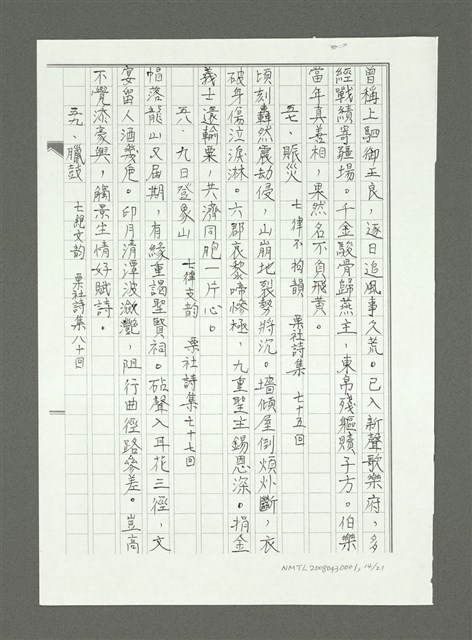 曾稱上駟御王良，逐日追風事久荒。已入新聲歌樂府，多
經戰績寄疆場。千金駿骨歸燕主，東帛殘軀贖子方。伯樂
當年真善相，果然名不負飛黃。
五七、賑災　七律不拘韻　栗社詩集　七十五回
頃刻轟然震劫侵，山崩地裂勢將沉。墻傾屋倒煩炒斷，衣
破身傷泣淚淋。六郡哀黎啼慘極，九重聖主錫恩深。捐金
義士還輸粟，共濟同胞一片心。
五八、九日登象山　七律支韻　栗社詩集七十七回
帽落龍山又屆期，有緣重謁聖賢祠。砧聲入耳花三徑，文
宴留人酒幾卮。印月清潭波瀲灩，阻行曲徑路參差。豈高
不覺添豪興，觸景生情好賦詩。
五九、臘鼓　七絕文韵　栗社詩集八十回
NMTL20080430001, 14/21